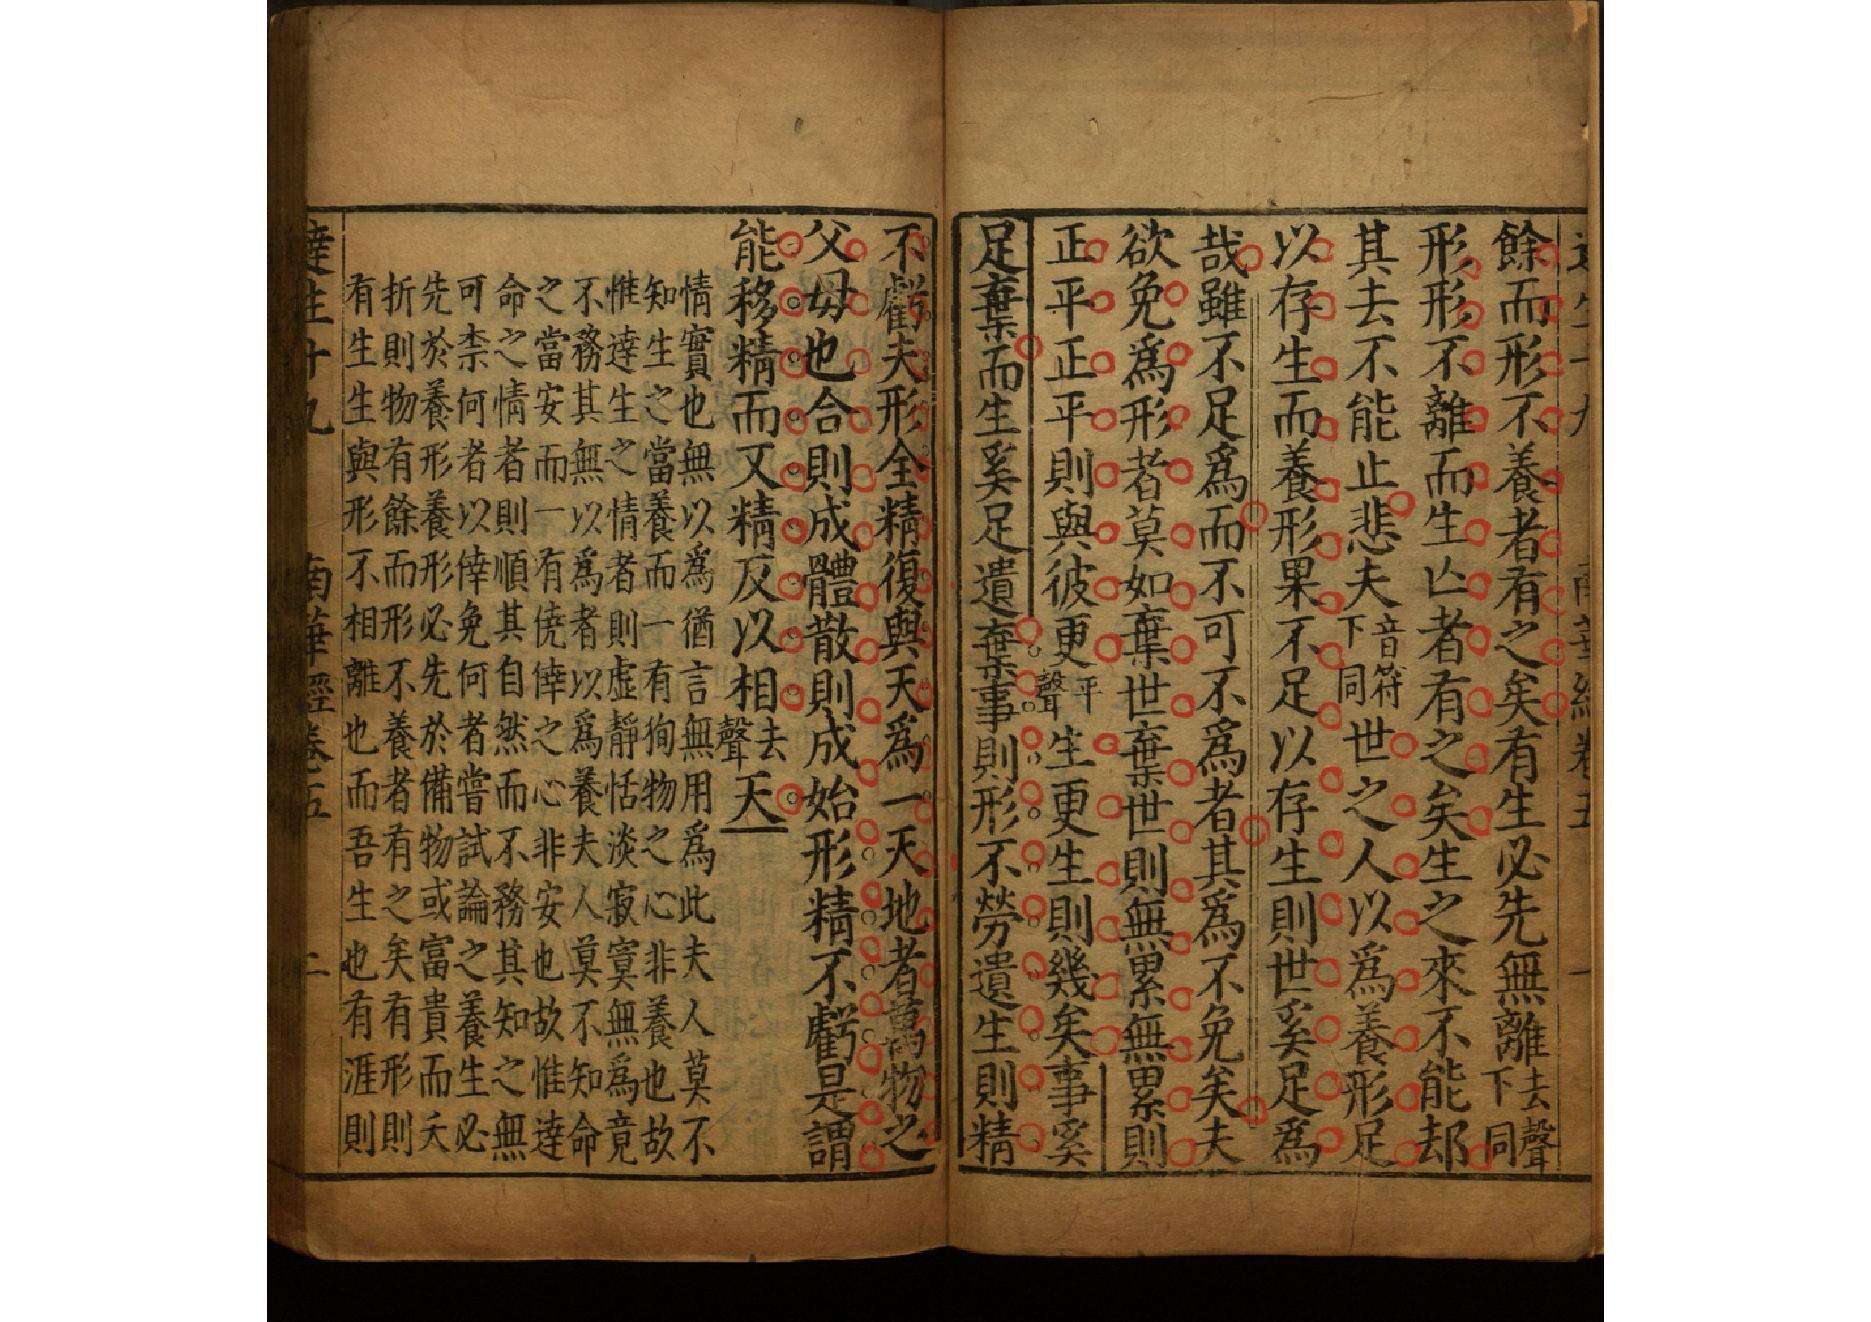 達生十九 南華經卷五 一
餘而形不養者有之矣有生必先無離去聲下同
形形不離而生亾者有之矣生之來不能却
其去不能止悲夫音符下同世之人以爲養形足
以存生而養形果不足以存生則世奚足爲
哉雖不足爲而不可不爲者其爲不免矣夫
欲免爲形者莫如棄世棄世則無累無累則
正平正平則與彼更平聲生更生則幾矣事奚
足棄而生奚足遺棄事則形不勞遺生則精
不虧夫形全精復與天爲一天地者萬物之
父母也合則成體散則成始形精不虧是謂
能移精而又精反以相去聲天
情實也無以爲猶言無用爲此夫人莫不
知生之當養而一有狥物之心非養也故
惟達生之情者則虛靜恬淡寂寞無爲竟
不務其無以爲者以爲養夫人莫不知命
之當安而一有僥倖之心非安也故惟達
命之情者則順其自然而不務其知之無
可柰何者以倖免何者嘗試論之養生必
先於養形養形必先於備物或富貴而夭
折則物有餘而形不養者有之矣有形則
有生生與形不相離也而吾生也有涯則
達生十九 南華經卷五 二